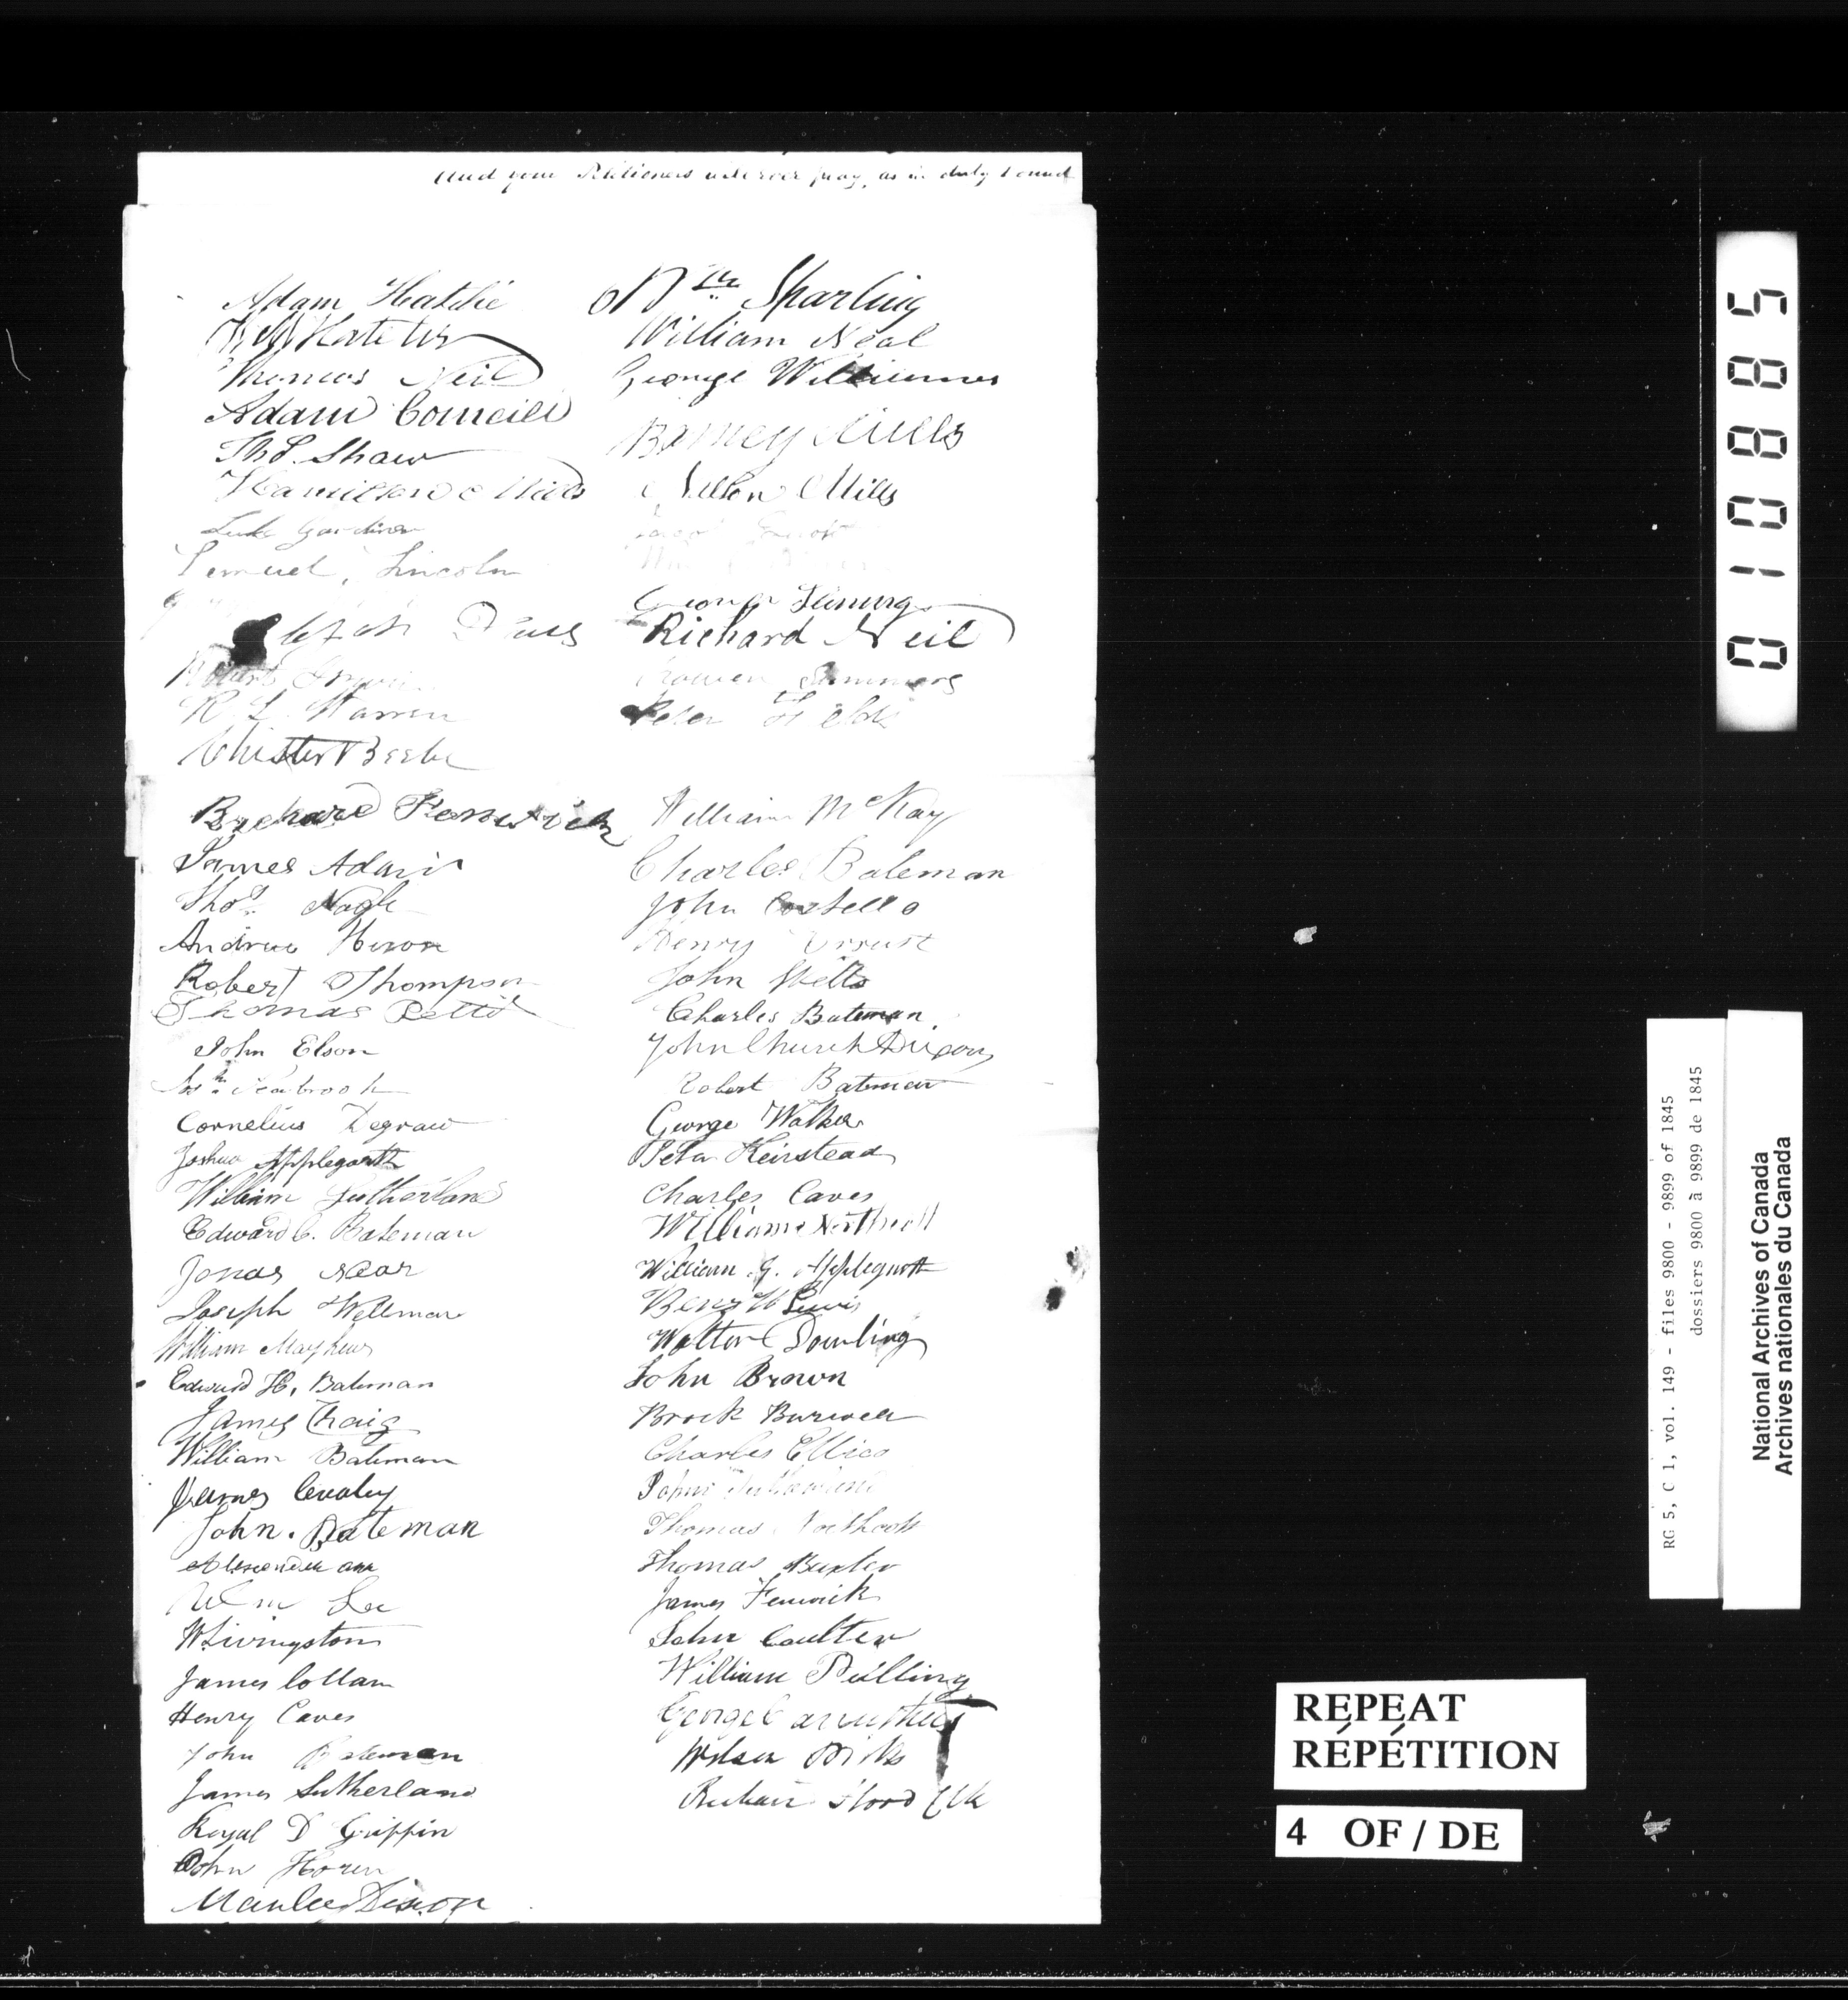 And your Petitioners will ever pray, as in duty bound
Adam Hatelie
Thomas Neil
Adam Council
Thos. Shaw
Hamilton Mills
Luke Gardiner
Lemuel Lincoln
Robert
R. L. Warren
Chister Beebe
Richard Fenwick
James Adair
Thos. Nagle
Andrew Heron
Robert Thompson
Thomas Pettit
John Elson
Seabrook
Cornelius Degraw
Joshua Applegarth
William Sutherland
Edward C. Bateman
Jonas Near
Joseph Wellman
William Mayhew
Edward H. Bateman
James Craig
William Bateman
James
John. Bateman
Wm Lee
W Livingston
James Collam
Henry Caves
John Bateman
James Sutherland
Royal D Griffin
John Horen
Manlee Dixon
Wm Sharling
William Neal
George Williums
Barney Mills
Nelson Mills
George
Richard Neil
Summers
Peter
William McKay
Charles Bateman
John Costello
Henry
John Wells
Charles Bateman
John Church Dixon
Robert Bateman
George Walker
Peter Keirstead
Charles Caves
William Northcott
William G. Applegarth
Benj W Lewis
Walter Dowling
John Brown
Brock Burwell
Charles Ellico
John Sutherland
Thomas Northcott
Thomas Baxter
James Fenwick
John Coulter
William Pulling
George Caruthers
Wilson Mills
Hood
010885
RG 5, C 1, vol. 149 - files 9800 - 9899 of 1845
dossiers 9800 à 9899 de 1845
National Archives of Canada
Archives nationales du Canada
REPEAT
RÉPÉTITION
4 OF / DE